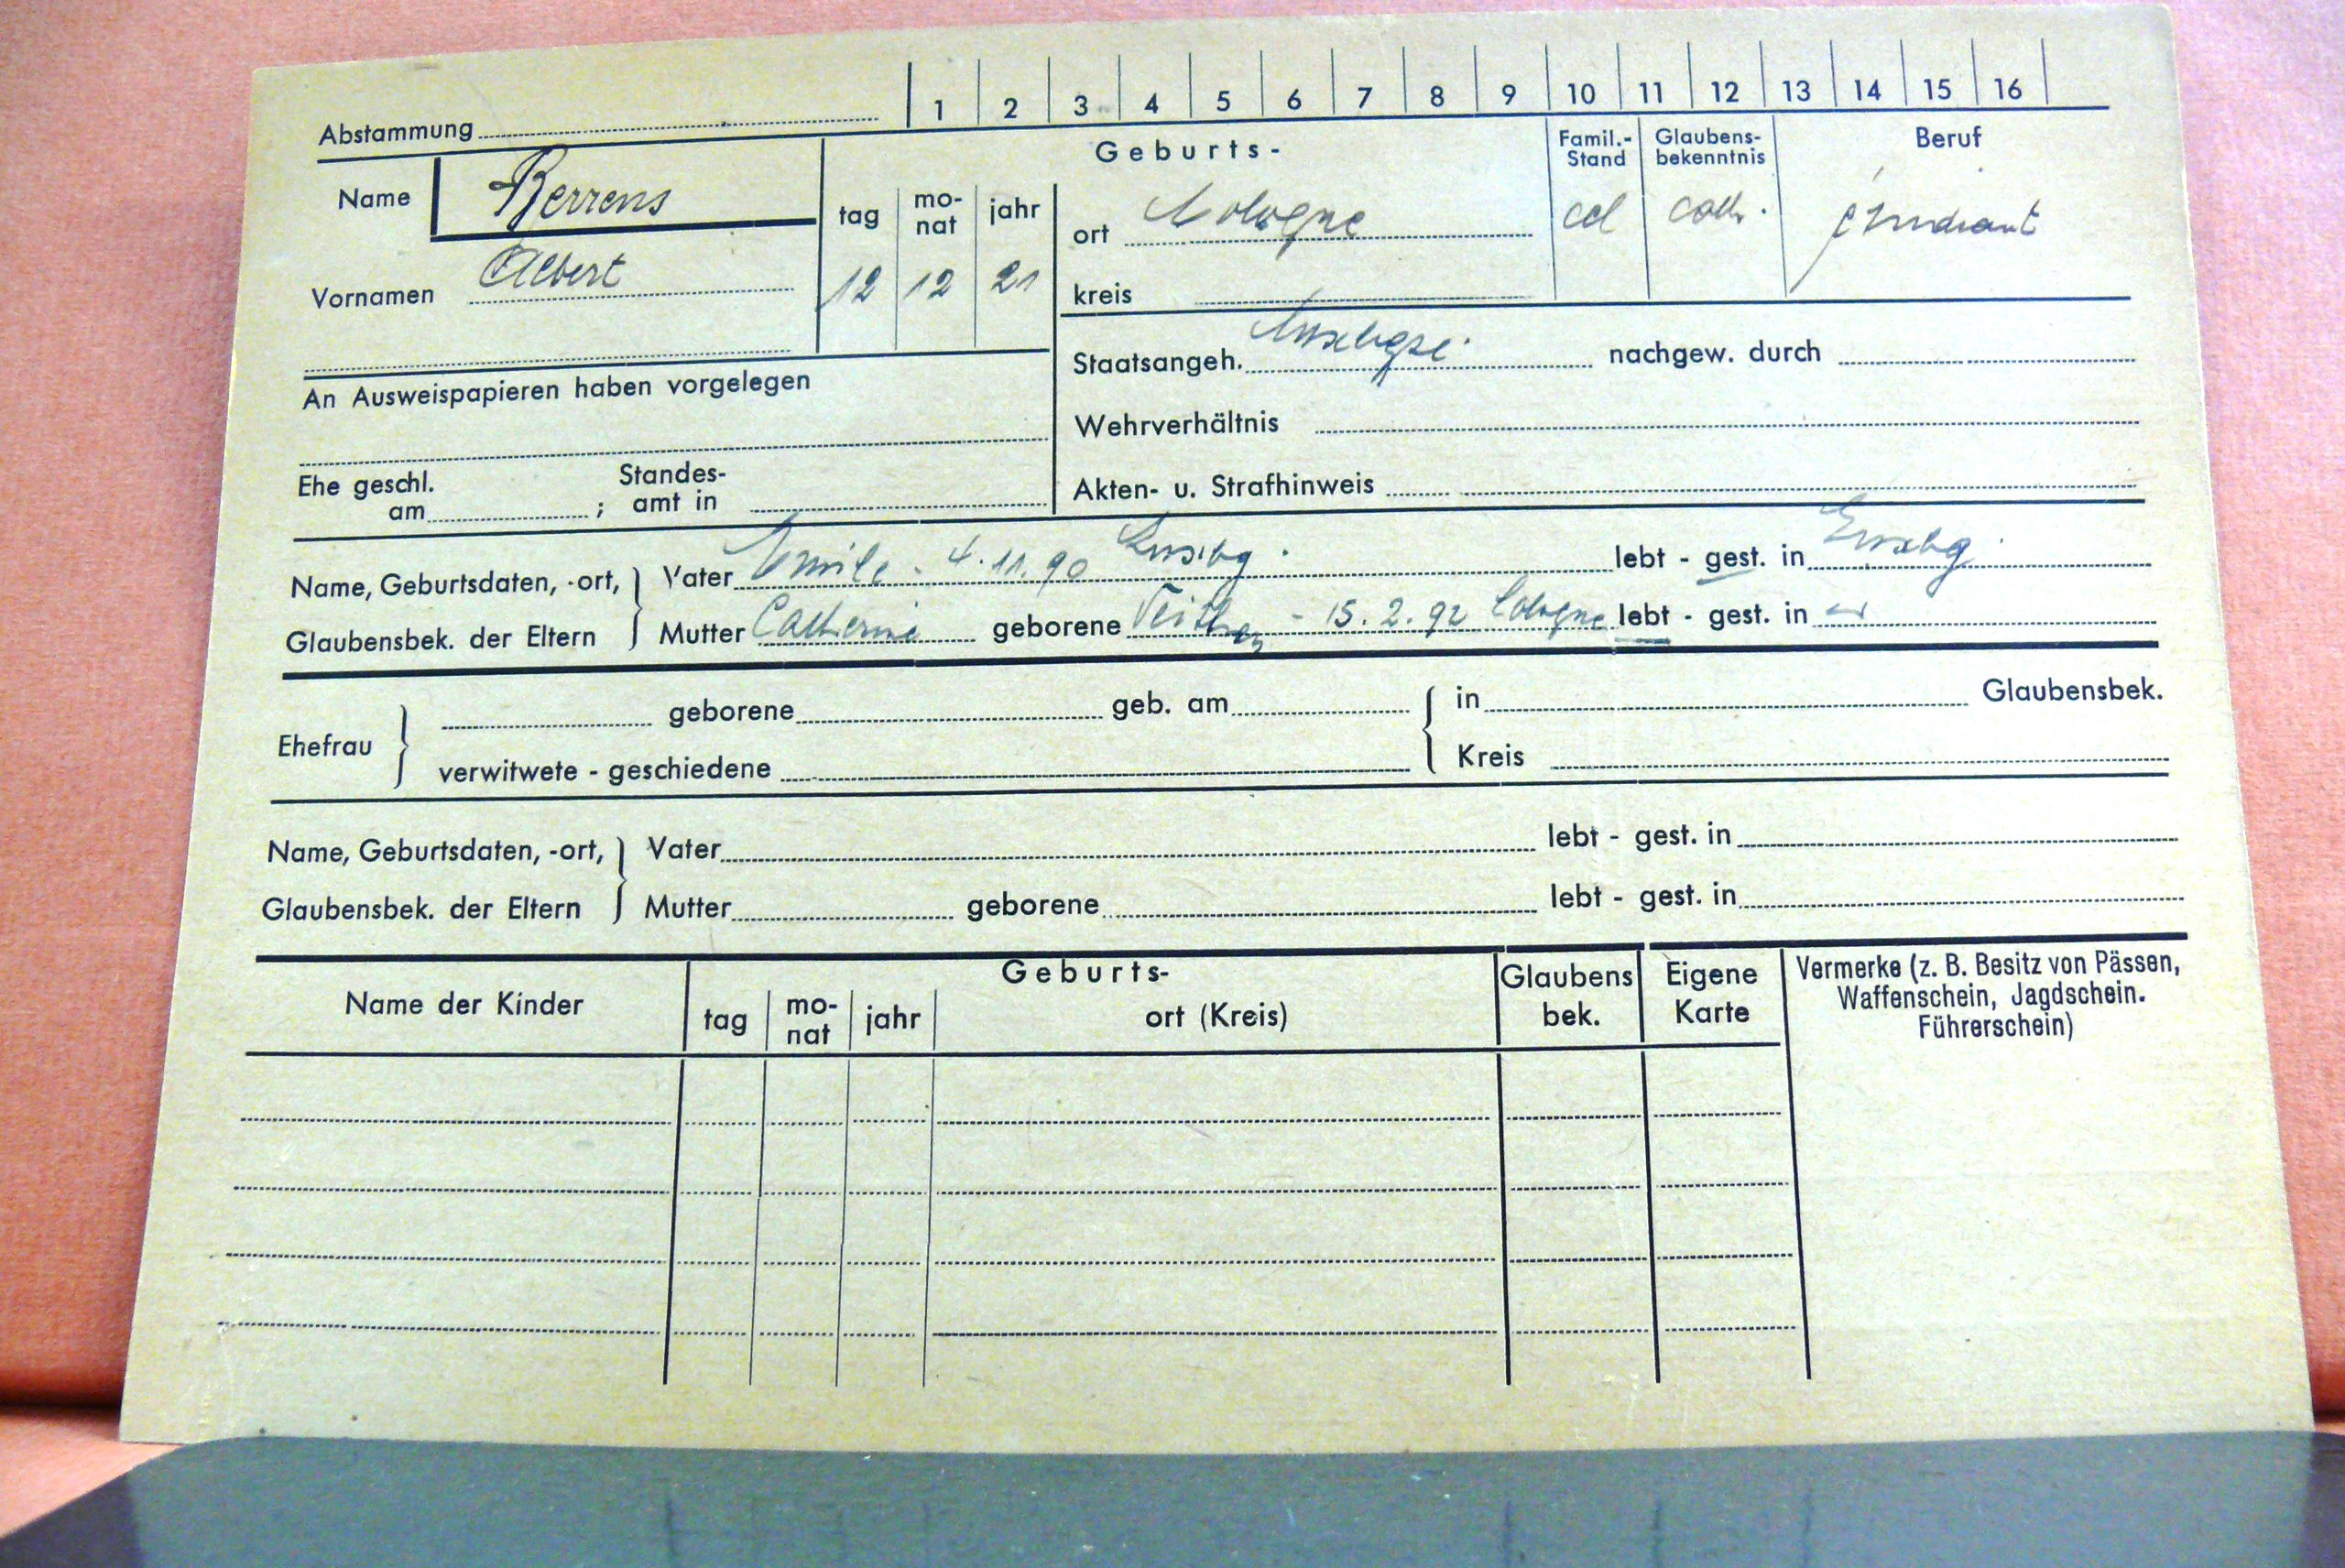 1 2 3 4 5 6 7 8 9 10 11 12 13 14 15 16
Abstammung
Name Berrens
Geburts-
Famil.-Stand Glaubens-bekenntnis Beruf
tag mo-nat jahr
ort Cologne cel cath. étudiant
Vornamen Albert 12 12 21
kreis
Staatsangeh. nachgew. durch
An Ausweispapieren haben vorgelegen
Wehrverhältnis
Ehe geschl. am ; Standes-amt in
Akten- u. Strafhinweis
Name, Geburtsdaten, -ort, Vater Emile - 4.11.90 Luxbg. lebt - gest. in Luxbg.
Glaubensbek. der Eltern Mutter Catherine geborene - 15.2.92 Cologne lebt - gest. in
geborene geb. am in Glaubensbek.
Ehefrau
verwitwete - geschiedene Kreis
Name, Geburtsdaten, -ort, Vater lebt - gest. in
Glaubensbek. der Eltern Mutter geborene lebt - gest. in
Geburts-
Name der Kinder tag mo-nat jahr ort (Kreis) Glaubens bek. Eigene Karte
Vermerke (z. B. Besitz von Pässen,
Waffenschein, Jagdschein.
Führerschein)